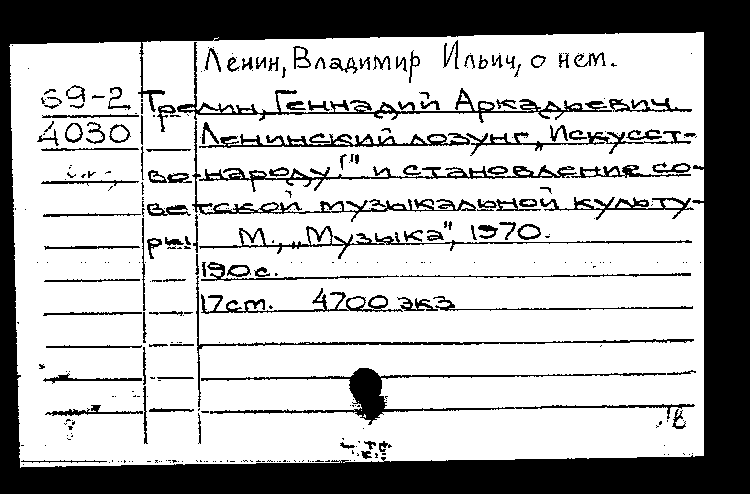 Ленин, Владимир Ильич, о нем.
69-2 Трелин, Геннадий Аркадьевич
4030 Ленинский лозунг „Искусст-
во-народу!" и становление со-
ветской музыкальной культу-
ры. М., „Музыка", 1970.
190с.
17см. 4700 экз